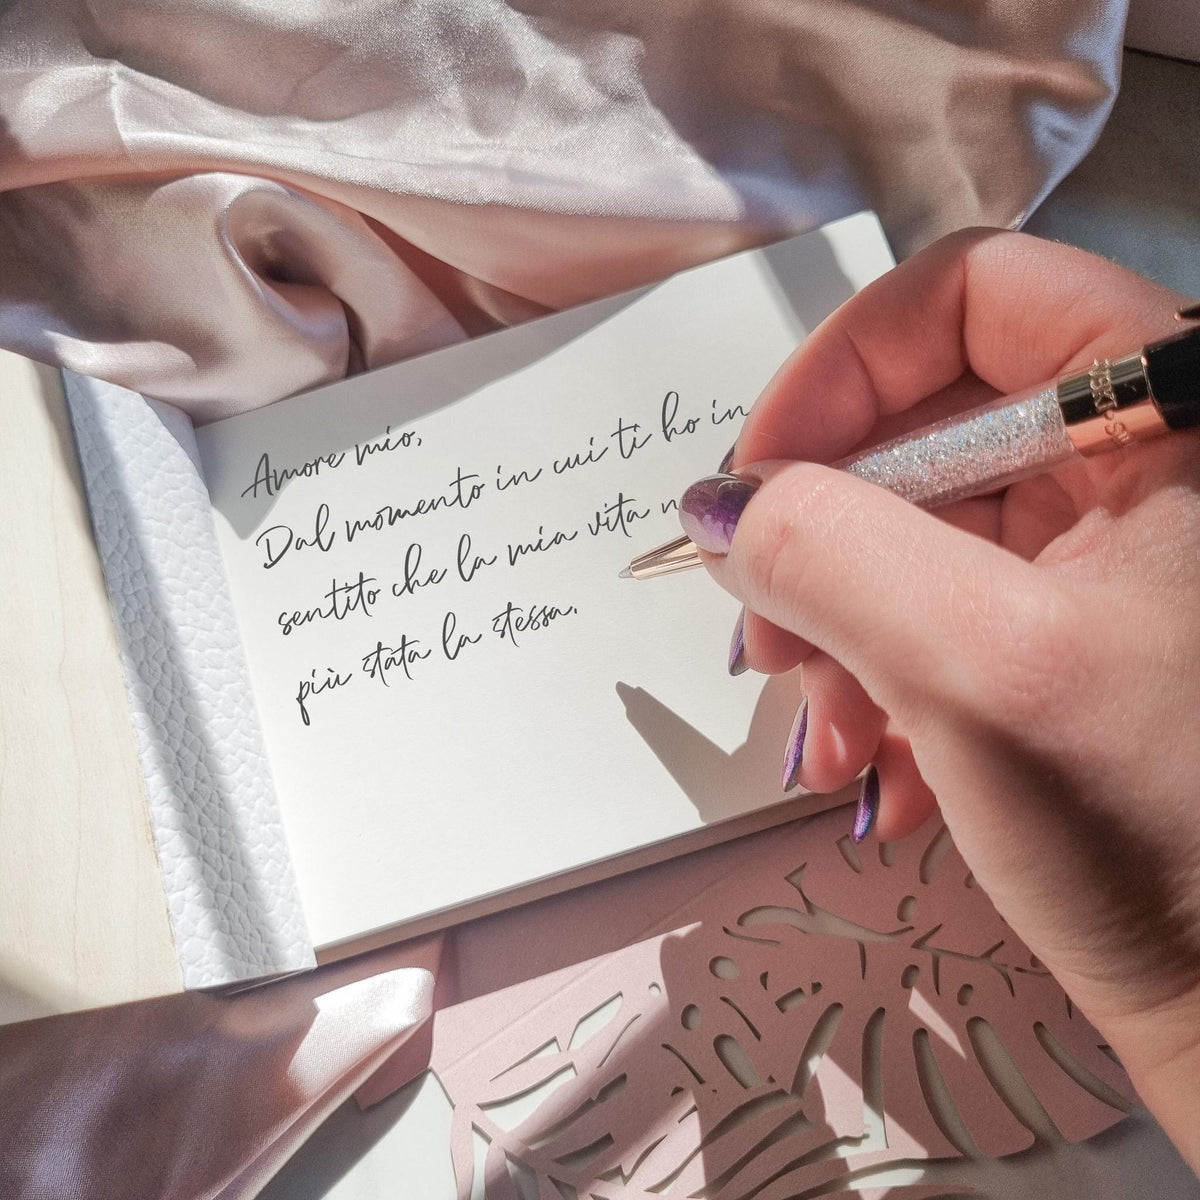 Amore mio,
Dal momento in cui ti ho in
sentito che la mia vita n
più stata la stessa.